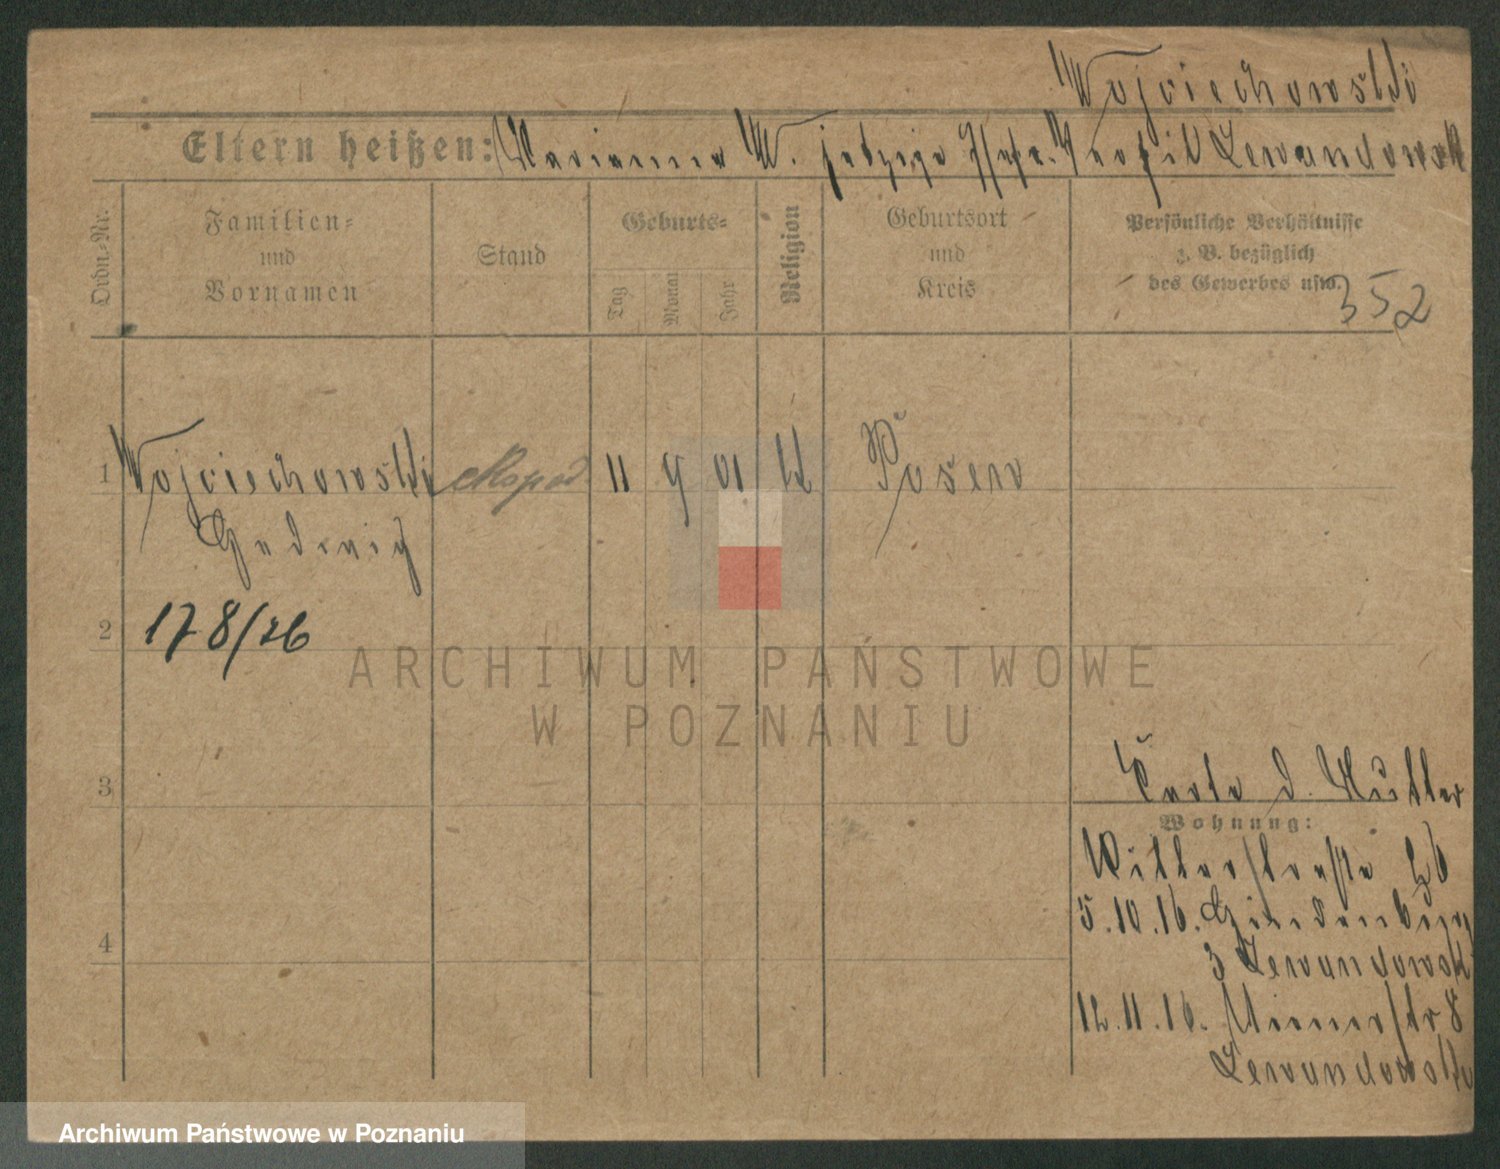 Wojciechowski
Eltern heißen: Marianna W. jetzige Ehefr. Teofil Lewandowsk
Ordn.-Nr.
Familien-
und
Vornamen
Stand
Geburts-
Tag
Monat
Jahr
Religion
Geburtsort
und
Kreis
Persönliche Verhältnisse
z. B. bezüglich
des Gewerbes usw.
352
1 Wojciechowski 11 9 01 k Posen
Hedwig
2 17 8/26
ARCHIWUM PAŃSTWOWE
W POZNANIU
3
Karte d. Mutter
Wohnung:
4
5.10.16.
3 Lewandowsk
12.11.16. 8
Lewandowska
Archiwum Państwowe w Poznaniu